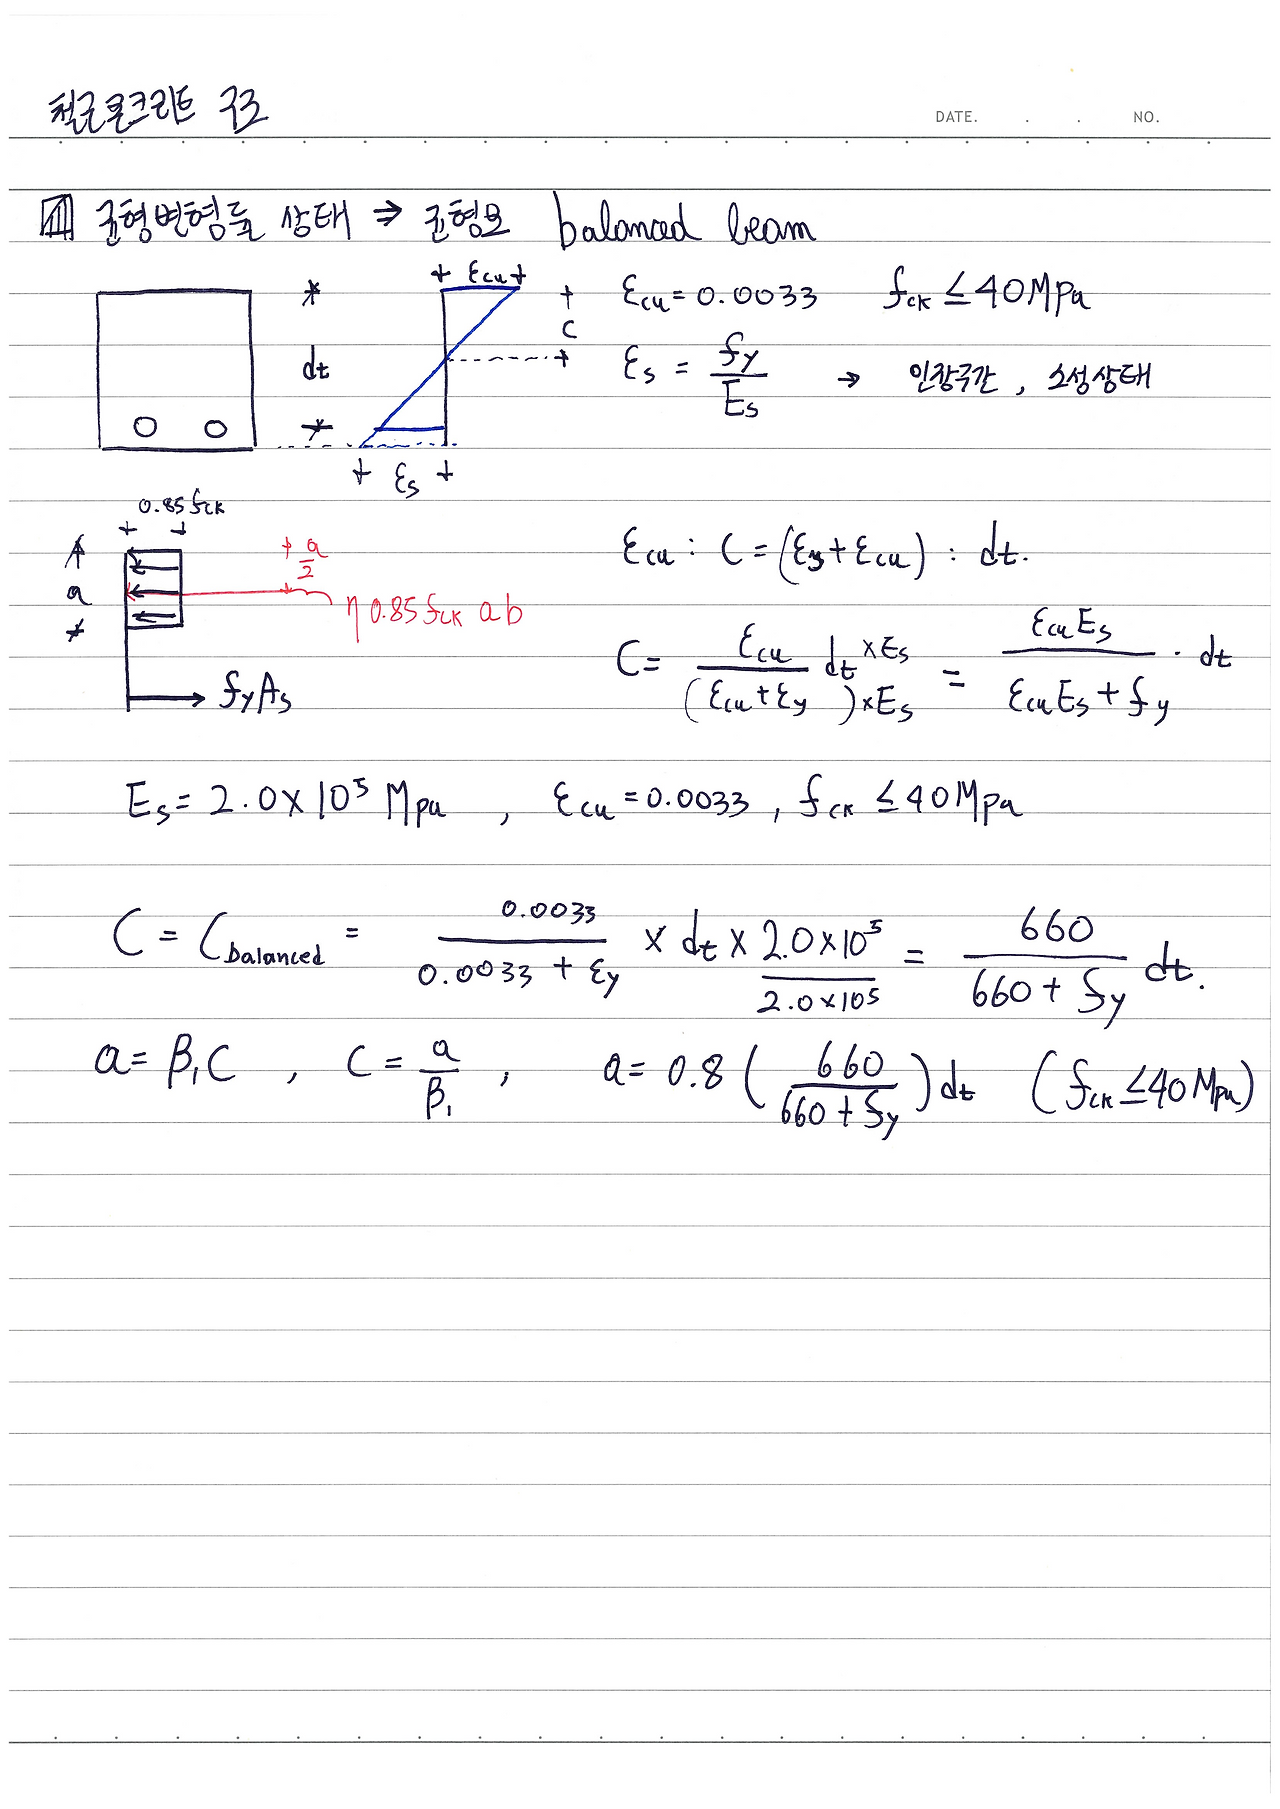 철근콘크리트 구조
DATE. . . NO.
균형변형률 상태 ⇒ 균형보 balanced beam
εcu
εcu = 0.0033 fck ≤ 40MPa
c
dt
εs = fy/Es → 인장구간, 소성상태
εs
0.85fck
a
a/2
η0.85fck ab
fyAs
εcu : C = (εs + εcu) : dt.
C = εcu/(εcu+εy)×Es dt ×Es = εcuEs/(εcuEs + fy) · dt
Es = 2.0×10⁵ Mpa , εcu = 0.0033 , fck ≤ 40Mpa
C = Cbalanced = 0.0033/(0.0033 + εy) × dt × 2.0×10⁵/2.0×10⁵ = 660/(660 + fy) dt.
a = β₁C , C = a/β₁ , a = 0.8 (660/(660 + fy)) dt (fck ≤ 40Mpa)